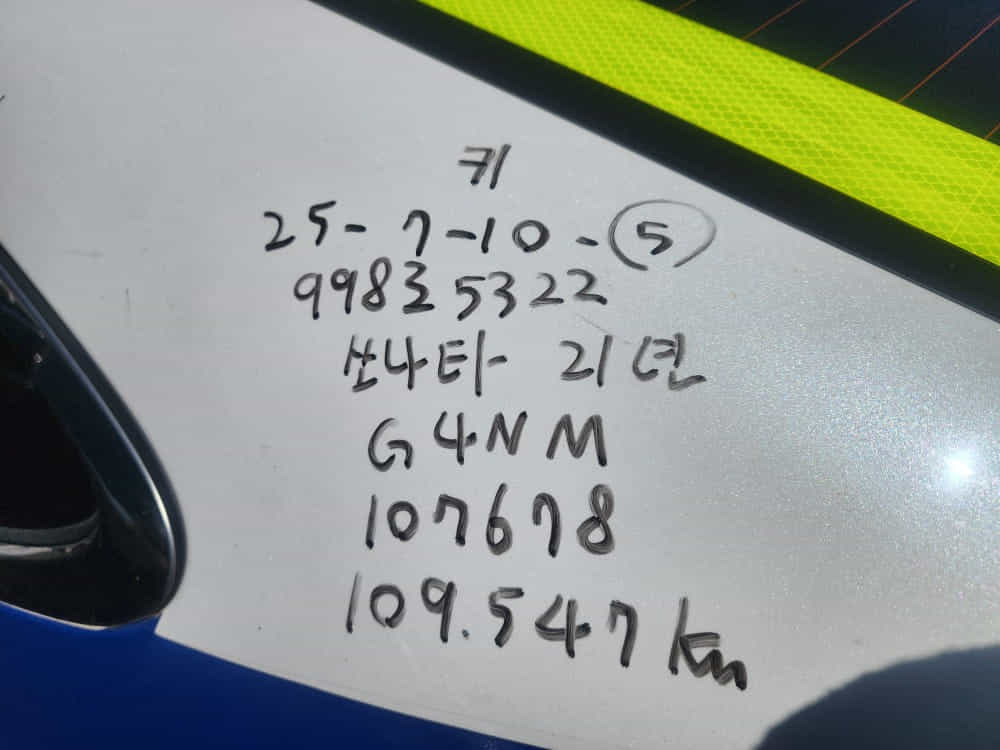 키
25-7-10-⑤
998로5322
쏘나타 21년
G4NM
107678
109.547km